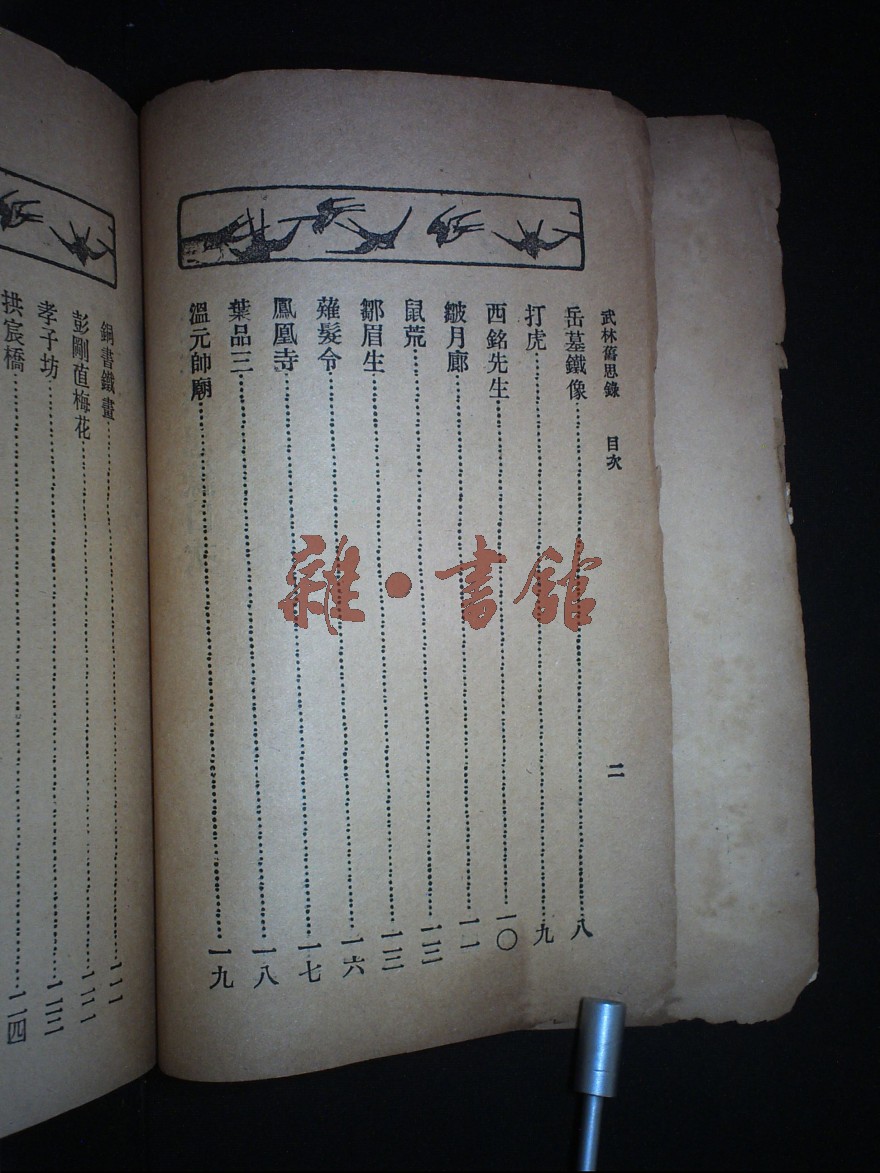 武林舊思錄　目次　二
岳墓鐵像……八
打虎……九
西銘先生……一〇
皺月廊……一一
鼠荒……一三
鄒眉生……一三
薙髮令……一六
鳳凰寺……一七
葉品三……一八
溫元帥廟……一九
銅書鐵畫……二一
彭剛直梅花……二二
孝子坊……二三
拱宸橋……二四
雜·書館